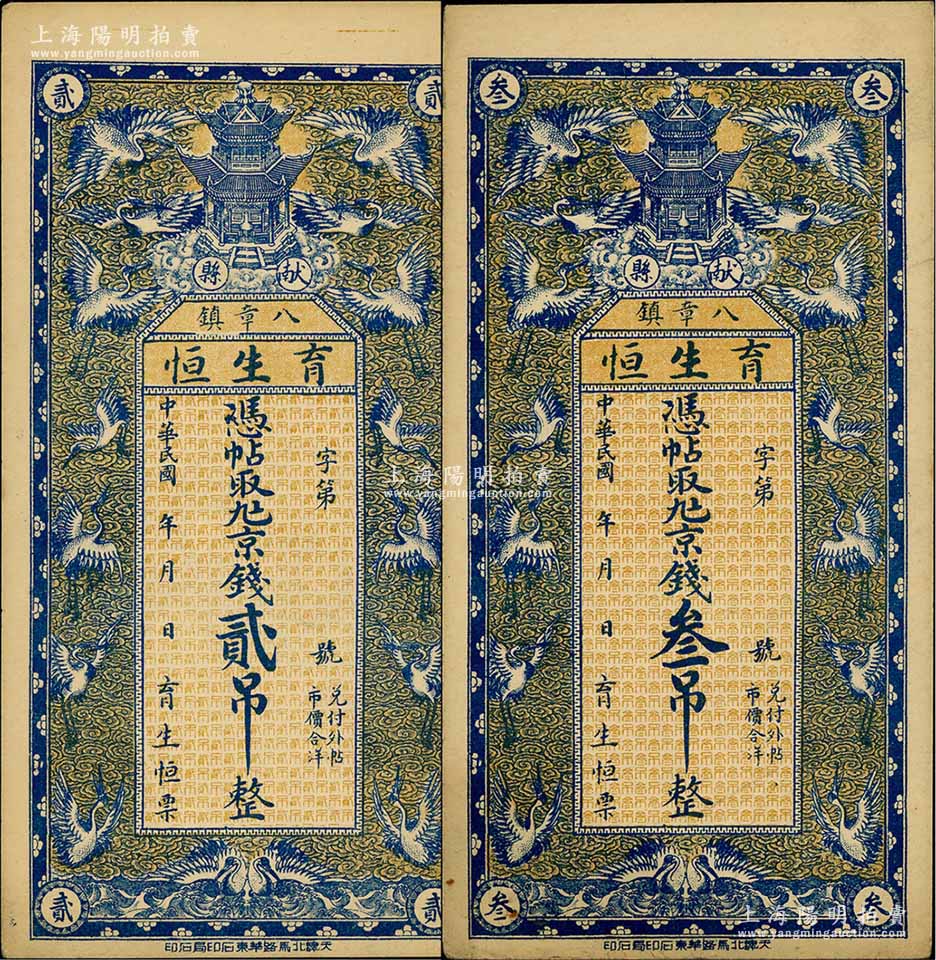 上海陽明拍賣
www.yangmingauction.com
貳
貳
献縣
八章鎮
育生恒
字第 號
兌付外帖
市價合洋
憑帖取京錢貳吊整
中華民國 年 月 日 育生恒票
貳
貳
天津北馬路華東石印局石印
叁
叁
献縣
八章鎮
育生恒
字第 號
兌付外帖
市價合洋
憑帖取京錢叁吊整
中華民國 年 月 日 育生恒票
叁
叁
天津北馬路華東石印局石印
上海陽明拍賣
www.yangmingauction.com
上海陽明拍賣
www.yangmingauction.com